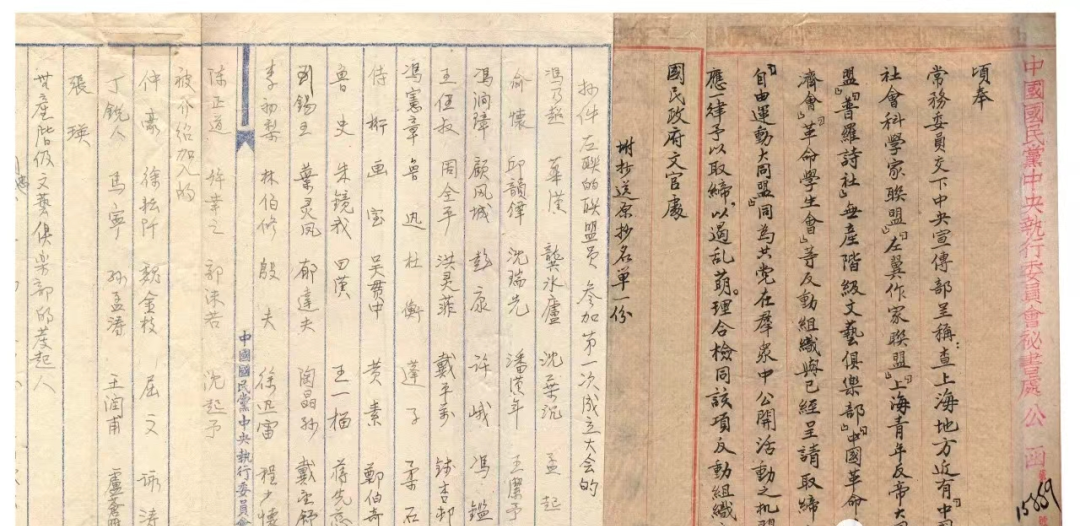 中國國民黨中央執行委員會秘書處公函
15889
頃奉
常務委員交下中央宣傳部呈稱：查上海地方近有「中國
社會科學家聯盟」「左翼作家聯盟」「上海青年反帝大
盟」「普羅詩社」「無產階級文藝俱樂部」「中國革命
濟會」「革命學生會」等反動組織與已經呈請取締
自由運動大同盟同為共党在羣衆中公開活動之机關
應一律予以取締，以遏乱萌。理合檢同該項反動組織
國民政府文官處
附抄送原抄名單一份
抄件 左联的联盟員 参加第一次成立大会的
馮乃超 華漢 龔氷廬 沈葉沉 孟超
俞懷 邱韻鐸 沈瑞先 潘漢年 王潔予
馮潤璋 顧凤城 彭康 许峨 馮鏗
王任叔 周全平 洪灵菲 戴平萬 钱杏邨
馮憲章 鲁迅 杜衡 蓬子 柔石
侍桁 画室 吴貫中 黄素 鄭伯奇
鲁史 朱镜我 田漢 王一榴 蒋光慈
刘锡五 葉灵凤 郁達夫 陶晶孙 戴望舒
李初梨 林伯修 殷夫 徐迅雷 程少懷
中國國民黨中央執行委員會
陈正道 许幸之 郭沫若 沈起予
被介绍加入的
仲豪 徐耘阡 魏金枝 屈文
丁锐人 馬宁 孙孟涛 王润甫
張瑛
无産階级文藝俱楽部的发起人